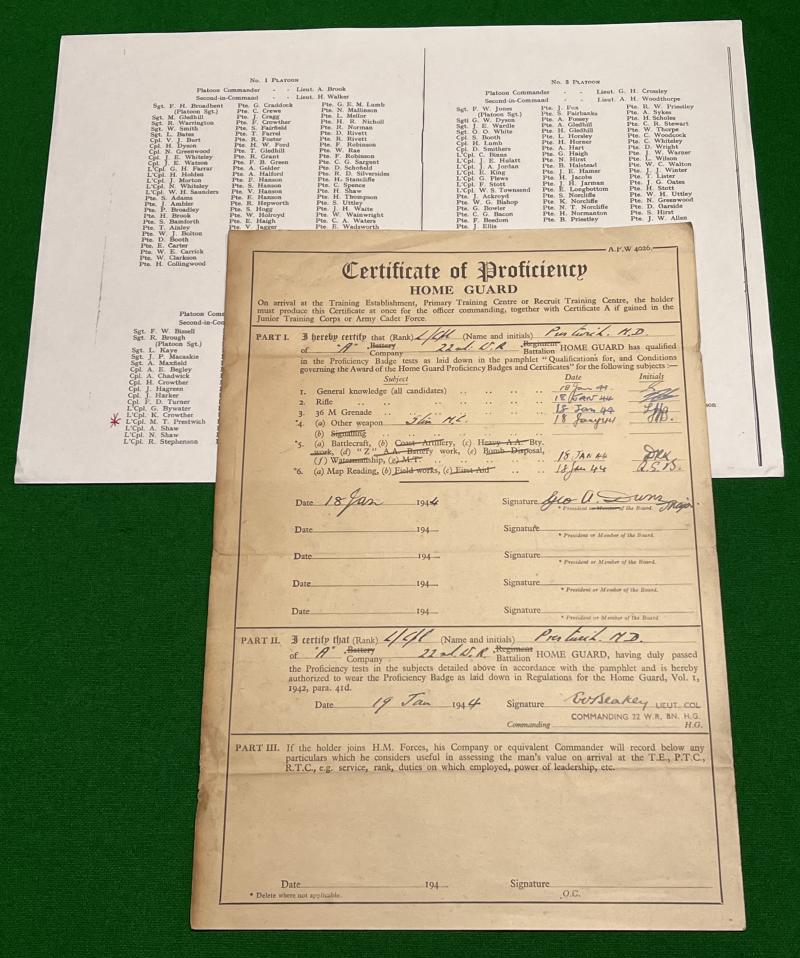 No. 1 Platoon
Platoon Commander - - Lieut. A. Brook
Second-in-Command - - Lieut. H. Walker
Sgt. F. H. Broadbent
(Platoon Sgt.)
Sgt. M. Gledhill
Sgt. R. Warrington
Sgt. W. Smith
Sgt. L. Bates
Cpl. V. J. Burt
Cpl. H. Dyson
Cpl. N. Greenwood
Cpl. J. E. Whiteley
Cpl. J. E. Watson
L'Cpl. G. H. Farrar
L'Cpl. H. Holden
L'Cpl. J. Morton
L'Cpl. N. Whiteley
L'Cpl. W. H. Saunders
Pte. S. Adams
Pte. J. Ambler
Pte. P. Broadley
Pte. H. Brook
Pte. S. Bamforth
Pte. T. Ainley
Pte. W. J. Bolton
Pte. D. Booth
Pte. E. Carter
Pte. W. E. Carrick
Pte. W. Clarkson
Pte. H. Collingwood
Pte. G. Craddock
Pte. C. Crewe
Pte. J. Cragg
Pte. F. Crowther
Pte. S. Fairfield
Pte. T. Farrel
Pte. R. Foster
Pte. H. W. Ford
Pte. T. Gledhill
Pte. R. Grant
Pte. F. B. Green
Pte. A. Gelder
Pte. A. Halford
Pte. F. Hanson
Pte. S. Hanson
Pte. V. Hanson
Pte. E. Hanson
Pte. R. Hepworth
Pte. S. Hogg
Pte. W. Holroyd
Pte. E. Haigh
Pte. V. Jagger
Pte. G. E. M. Lumb
Pte. N. Mallinson
Pte. L. Mellor
Pte. H. R. Nicholl
Pte. R. Norman
Pte. D. Rivett
Pte. R. Rivett
Pte. F. Robinson
Pte. W. Rae
Pte. F. Robinson
Pte. C. G. Sargent
Pte. D. Schofield
Pte. R. D. Silversides
Pte. H. Stancliffe
Pte. C. Spence
Pte. H. Shaw
Pte. H. Thompson
Pte. S. Uttley
Pte. J. H. Waite
Pte. W. Wainwright
Pte. C. A. Waters
Pte. E. Wadsworth
Platoon Com
Second-in-C
Sgt. F. W. Bissell
Sgt. R. Brough
(Platoon Sgt.)
Sgt. L. Kaye
Sgt. J. P. Macaskie
Sgt. A. Maxfield
Cpl. A. E. Begley
Cpl. A. Chadwick
Cpl. H. Crowther
Cpl. J. Hagreen
Cpl. J. Harker
Cpl. F. D. Turner
L'Cpl. G. Bywater
L'Cpl. K. Crowther
* L'Cpl. M. T. Prestwich
L'Cpl. A. Shaw
L'Cpl. N. Shaw
L'Cpl. R. Stephenson
Platoon Commander - - Lieut. G. H. Crossley
Second-in-Command - - Lieut. A. H. Woodthorpe
Sgt. F. W. Jones
(Platoon Sgt.)
Sgt G. W. Dyson
Sgt. J. E. Wardle
Sgt. O. O. White
Cpl. S. Booth
Cpl. H. Lumb
Cpl. D. Smithers
L'Cpl. C. Binns
L'Cpl. J. E. Hulatt
L'Cpl. J. A. Jordan
L'Cpl. E. King
L'Cpl. G. Plews
L'Cpl. F. Stott
L'Cpl. W. S. Townsend
Pte. J. Ackroyd
Pte. W. G. Bishop
Pte. G. Bowler
Pte. C. G. Bacon
Pte. F. Beedom
Pte. J. Ellis
Pte. J. Fox
Pte. S. Fairbanks
Pte. A. Fossey
Pte. A. Gledhill
Pte. H. Gledhill
Pte. L. Horsley
Pte. H. Horner
Pte. A. Hart
Pte. G. Haigh
Pte. N. Hirst
Pte. B. Halstead
Pte. J. E. Hamer
Pte. H. Jacobs
Pte. J. H. Jarman
Pte. E. Longbottom
Pte. S. Norcliffe
Pte. K. Norcliffe
Pte. N. T. Norcliffe
Pte. H. Normanton
Pte. B. Priestley
Pte. R. W. Priestley
Pte. A. Sykes
Pte. H. Scholes
Pte. C. R. Stewart
Pte. W. Thorpe
Pte. C. Woodcock
Pte. C. Whiteley
Pte. D. Wright
Pte. J. W. Warner
Pte. L. Wilson
Pte. W. C. Walton
Pte. J. J. Winter
Pte. T. Lister
Pte. J. G. Oates
Pte. H. Stott
Pte. W. H. Uttley
Pte. N. Greenwood
Pte. D. Garside
Pte. S. Hirst
Pte. J. W. Allen
son
A.F.W 4026.
Certificate of Proficiency
HOME GUARD
On arrival at the Training Establishment, Primary Training Centre or Recruit Training Centre, the holder
must produce this Certificate at once for the officer commanding, together with Certificate A if gained in the
Junior Training Corps or Army Cadet Force.
PART I. I hereby certify that (Rank) L/Cpl (Name and initials) Prestwich. M.D.
of "A" Battery Company 22nd W.R. Regiment Battalion HOME GUARD has qualified
in the Proficiency Badge tests as laid down in the pamphlet "Qualifications for, and Conditions
governing the Award of the Home Guard Proficiency Badges and Certificates" for the following subjects :—
Subject Date Initials
1. General knowledge (all candidates) 18 Jan 44
2. Rifle 18 JAN 44
3. 36 M Grenade 18 Jan 44
*4. (a) Other weapon 18 Jan 44
(b) Signalling
*5. (a) Battlecraft, (b) Coast Artillery, (c) Heavy A.A. Bty.
work, (d) "Z" A.A. Battery work, (e) Bomb Disposal,
(f) Watermanship, (g) M.T. 18 JAN 44
*6. (a) Map Reading, (b) Field works, (c) First Aid 18 Jan 44
Date 18 Jan 1944 Signature Geo A. Dunn Major
* President or Member of the Board.
Date 194 Signature
* President or Member of the Board.
Date 194 Signature
* President or Member of the Board.
Date 194 Signature
* President or Member of the Board.
Date 194 Signature
* President or Member of the Board.
PART II. I certify that (Rank) L/Cpl (Name and initials) Prestwich. M.D.
of "A" Battery Company 22nd W.R. Regiment Battalion HOME GUARD, having duly passed
the Proficiency tests in the subjects detailed above in accordance with the pamphlet and is hereby
authorized to wear the Proficiency Badge as laid down in Regulations for the Home Guard, Vol. 1,
1942, para. 41d.
Date 19 Jan 1944 Signature LIEUT. COL
COMMANDING 22 W.R. BN. H.G.
Commanding H.G.
PART III. If the holder joins H.M. Forces, his Company or equivalent Commander will record below any
particulars which he considers useful in assessing the man's value on arrival at the T.E., P.T.C.,
R.T.C., e.g. service, rank, duties on which employed, power of leadership, etc.
Date 194 Signature
* Delete where not applicable. O.C.